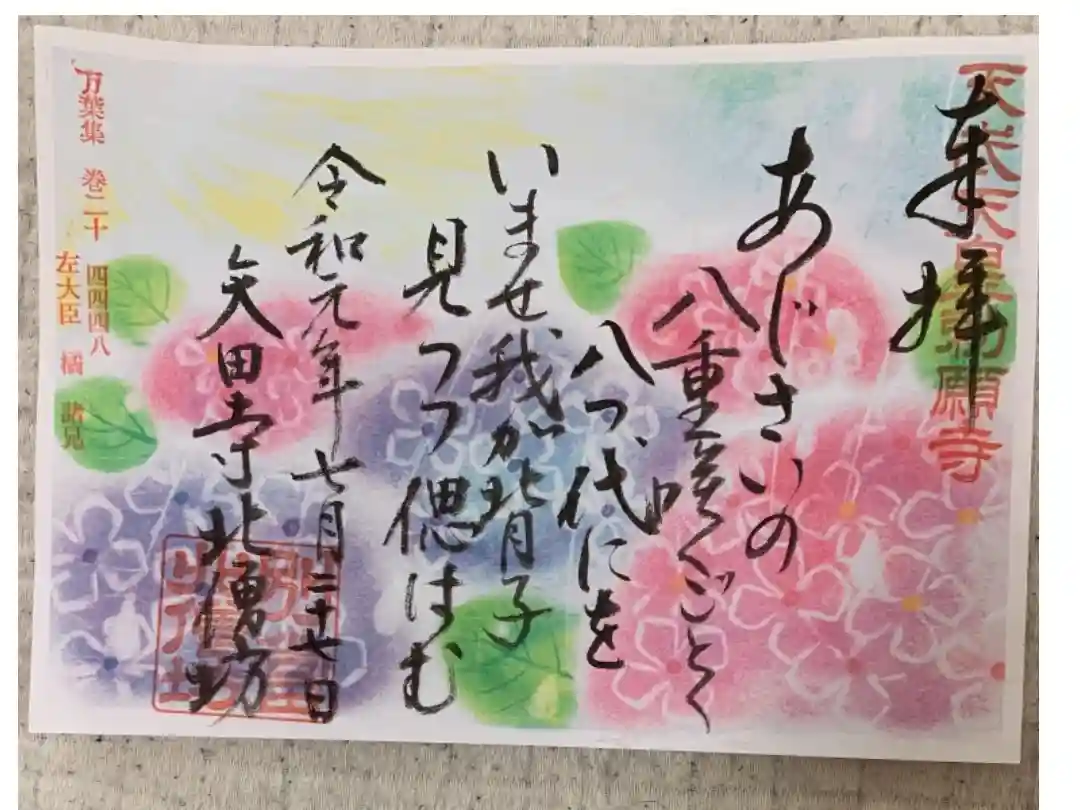 奉拝
天武天皇勅願寺
あじさいの
八重咲くごとく
八つ代にを
いませ我が背子
見つつ偲はむ
令和元年七月二十七日
矢田寺北僧坊
万葉集 巻二十 四四四八
左大臣 橘 諸兄